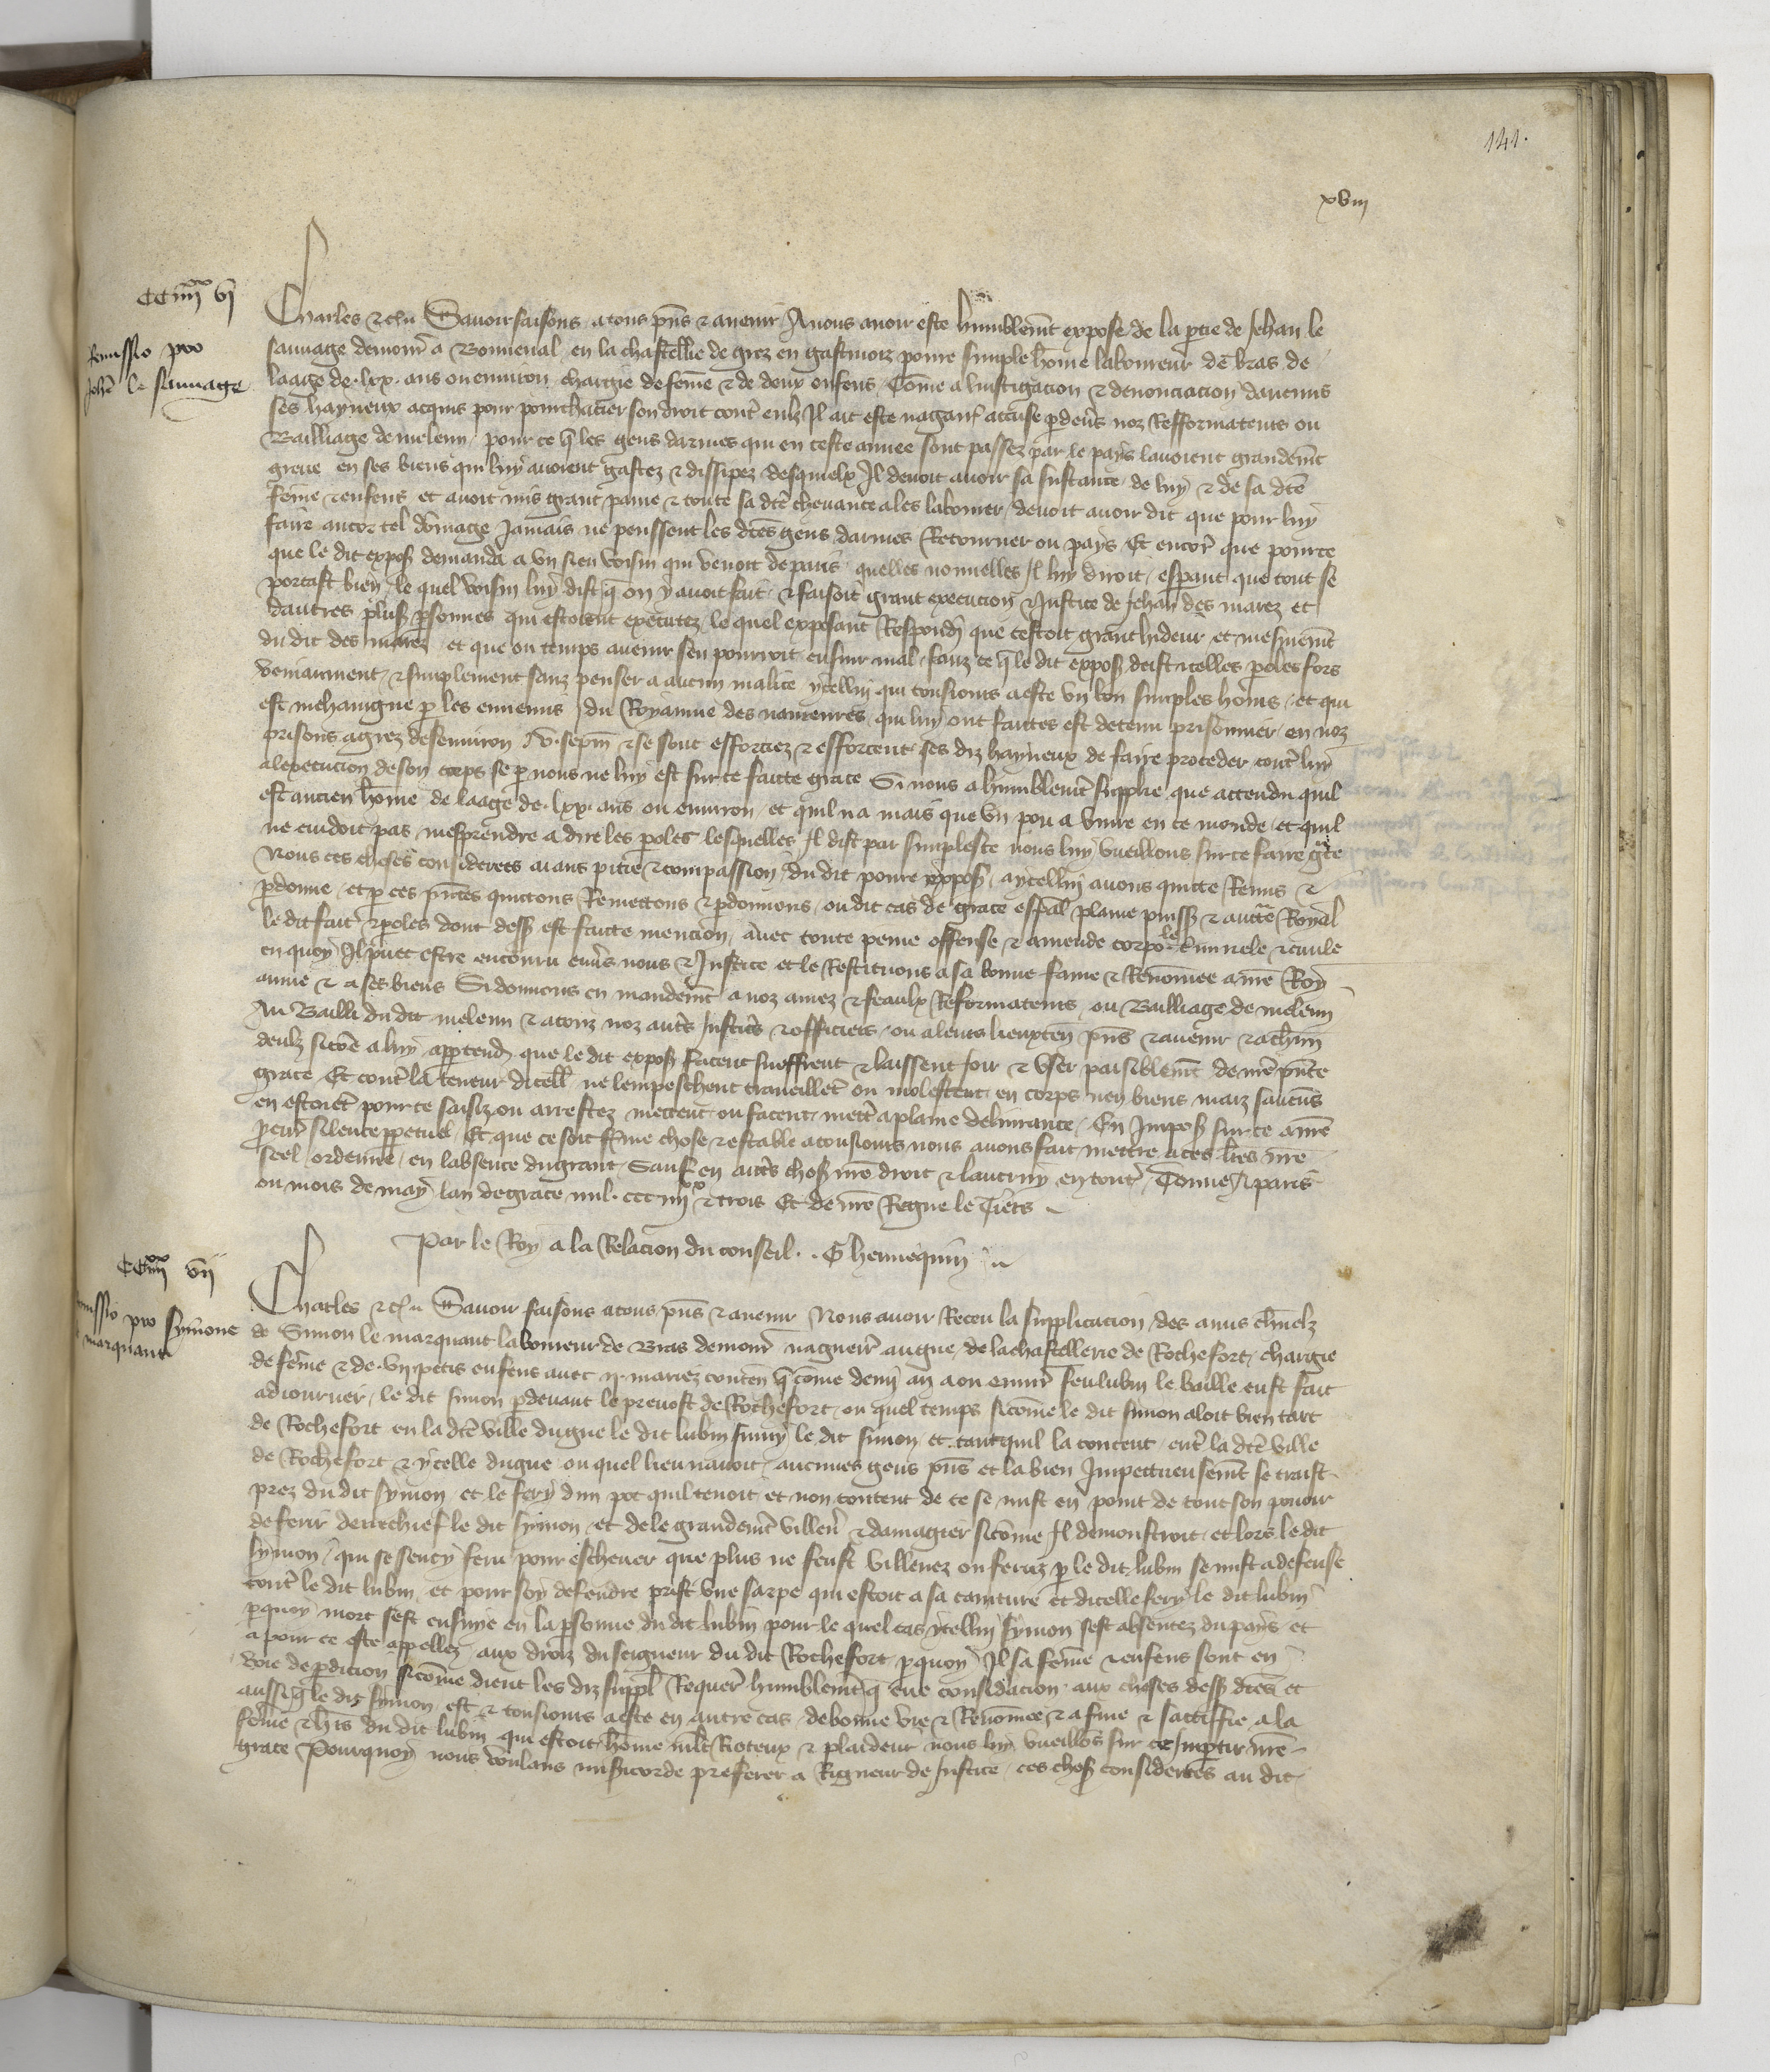 141.
xviii
CCiiiixx vj
Remissio pro
Johe le sauvage
Charles &c. Savoir faisons a tous pns & avenir A nous avoir este humblemt expose de la ptie de Jehan le
sauvage demour a Bonneval en la chastellie de grez en gastinois povre simple home laboureur de bras de
laage de lxx ans ou environ chargie de feme & de deux enfens Come a linstigacion & denonciacion daucuns
ses hayneux acquis pour pourchacier son droit contr eulz Il ait este nagair accuse pdevs noz Refformateurs ou
Bailliage de meleun pour ce q les gens darmes qui en ceste annee sont passez par le pays lavoient grandemt
greve en ses biens qui luy avoient gastez & dissipez desquielx Il devoit avoir sa sustance de luy & de sa dce
feme & enfens et avoit mis grant paine & toute sa dce chevance a les labourer devoit avoir dit que pour luy
faire ancor tel domage Jamais ne peussent les dces gens darmes Retourner ou pays Et encor que pource
que le dit expos demanda a un sien voisin qui venoit de paris quelles nouvelles Il luy diroit espant que tout se
portast bien le quel voisin luy dist q on y avoit fait & faisoit grant execucion & Justice de Jehan des marez et
dautres plus psonnes qui estoient executez le quel exposant Respondi que cestoit grant hideur et mesmemt
du dit des marez et que ou temps avenir sen pourroit ensuir mal sanz ce q le dit expos deist icelles poles fors
 & simplement sanz penser a aucun malice ycelluy qui tousiours a este un bon simples homs et qui
est mehaingne p les ennemis du Royaume des navreures qui luy ont faittes est detenu prisonnier en noz
prisons a grez desenviron v sepm & se sont efforciez & efforcent ses diz hayneux de faire proceder contr luy
a lexecucion de son corps se p nous ne luy est sur ce faicte grace Si nous a humblemt supplie que attendu quil
est ancien home de laage de lxx ans ou environ et quil na mais que un pou a vivre en ce monde et quil
ne cuidoit pas mesprendre a dire les poles lesquelles Il dist par simplesce nous luy vueillons sur ce faire gce
Nous ces choses considerees aians pitie & compassion du dit povre expos a ycelluy avons quicte Remis &
pdonne et p ces pntes quictons Remettons & pdonnons ou dit cas de grace espal plaine puiss & auctte Royal
le dit fait & poles dont dess est faicte mencion avec toute peine offense & amende corpole criminele & civile
en quoy Il puet estre encouru envs nous & Justice et le Restituons a sa bonne fame & Renomee a nre Roy
aume & a ses biens Si donnons en mandemt a noz amez & feaulx Reformateurs ou Bailliage de meleun
Au Bailli du dit meleun & a touz noz autrs Justiciers & officiers ou a leurs lieuxten pns & avenir & a chun
deulz sicome a luy apptendr que le dit expos facent sueffrent & laissent Joir & user paisiblemt de nre pnte
grace Et contr la teneur dicelle ne lempeschent travaillent ou molestent en corps ney biens maiz saucuns
en estoiet pour ce saisiz ou arrestez mettent ou facent mettr a plaine delivrance En Impos sur ce a nre
pcur silence ppetuel Et que ce soit ferme chose & estable a tousiours nous avons fait mettre a ces lres nre
seel ordenne en labsence du grant Sauf en autrs chos nre droit & lautruy en toutes Donne a paris
ou mois de may lan de grace mil ccc iiiixx & trois Et de nre Regne le Tiers
Par le Roy a la Relacion du conseil . G hennequin
CCiiiixx vij
missio pro Symone
marquant
Charles &c. Savoir faisons a tous pns & avenir Nous avoir Receu la supplicacion des amis charnelz
de Simon le marquant laboureur de Bras demour nagueir augue de la chastellerie de Rochefort chargie
de feme & de vij petis enfens avec mariez conten q come demy an a ou envir feu lubin le baille eust fait
adiourner le dit simon pdevant le prevost de Rochefort ou quel temps sicome le dit simon aloit bien tart
de Rochefort en la dce ville dugue le dit lubin suivy le dit simon et tantquil la conceut entr la dce ville
de Rochefort & ycelle dugue ou quel lieu navoit aucunes gens pns et la bien Impettueusemt se traist
prez du dit symon et le fery dun pot quil tenoit et non content de ce se mist en point de tout son povoir
de ferir derrechief le dit symon et de le grandemt villener & damagier sicome Il demonstroit et lors le dit
symon qui se senty feru pour eschever que plus ne feust villenez ou feruz p le dit lubin se mist a defense
contr le dit lubin et pour soy defendre prist une sarpe qui estoit a sa cainture et dicelle fery le dit lubin
pquoy mort sest ensuye en la psonne du dit lubin pour le quel cas ycelluy symon sest absentez du pays et
a pour ce este appellez aux droiz du seigneur du dit Rochefort pquoy Il sa feme & enfens sont en
voie de pdicion sicome dient les diz suppl Requer humblemt q eue considacion aux choses dess dces et
aussi q le dit symon est & tousiours a este en autre cas de bonne vie & Renomee & a fine & sattiffie a la
feme & hers du dit lubin qui estoit home mlt Rioteux & plaideur nous luy vueillons sur ce Impartir nre
grace Pourquoy nous voulans misicorde preferer a Rigueur de Justice ces chos considerees au dit